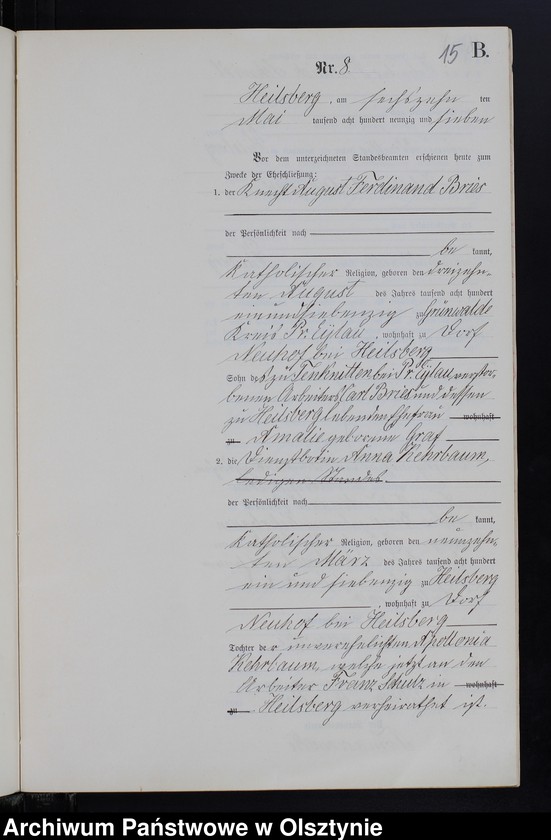 15 B.
Nr. 8.
Heilsberg, am sechszehn ten
Mai tausend acht hundert neunzig und sieben
Vor dem unterzeichneten Standesbeamten erschienen heute zum
Zwecke der Eheschließung:
1. der Knecht August Ferdinand Bries
der Persönlichkeit nach
be kannt,
katholischer Religion, geboren den dreizehn-
ten August des Jahres tausend acht hundert
einundsiebenzig zu Grünwalde
Kreis Pr. Eylau, wohnhaft zu Dorf
Neuhof bei Heilsberg
Sohn des zu Tenknitten bei Pr. Eylau verstor-
benen Arbeiters Carl Bries und dessen
zu Heilsberg lebenden Ehefrau wohnhaft
zu Amalie geborene Graf
2. die Dienstbotin Anna Kehrbaum,
ledigen Standes.
der Persönlichkeit nach
be kannt,
katholischer Religion, geboren den neunzehn-
ten März des Jahres tausend acht hundert
ein und siebenzig zu Heilsberg
, wohnhaft zu Dorf
Neuhof bei Heilsberg
Tochter der unverehelichten Apollonia
Kehrbaum, welche jetzt an den
Arbeiter Franz Schulz in wohnhaft
zu Heilsberg verheirathet ist.
Archiwum Państwowe w Olsztynie